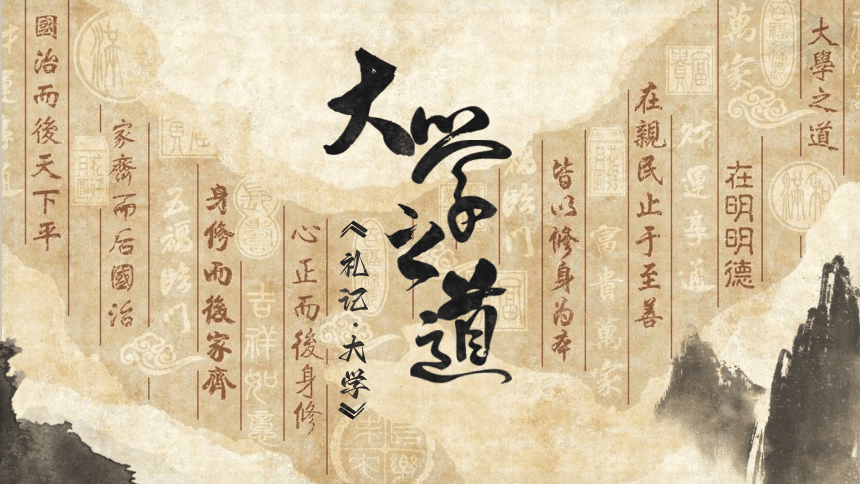 大學之道
在明明德
萬家
财運亨通
在親民止于至善
富貴萬家
皆以修身为本
福臨門
大学之道
《礼记·大学》
心正而後身修
吉祥如意
身修而後家齊
五福臨門
家齋而后國治
國治而後天下平
财運亨通